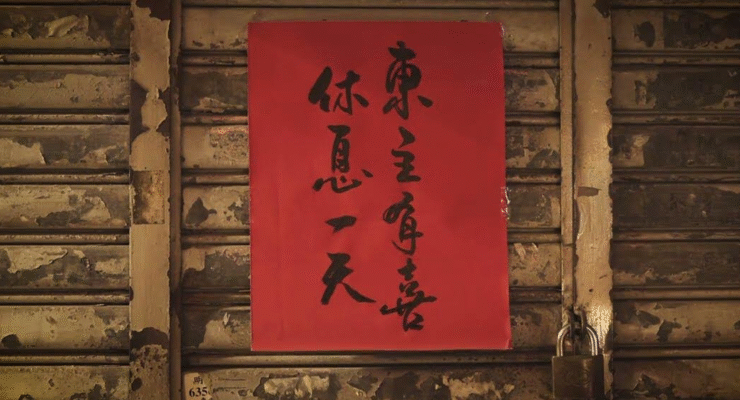 東主有喜
休息一天
635